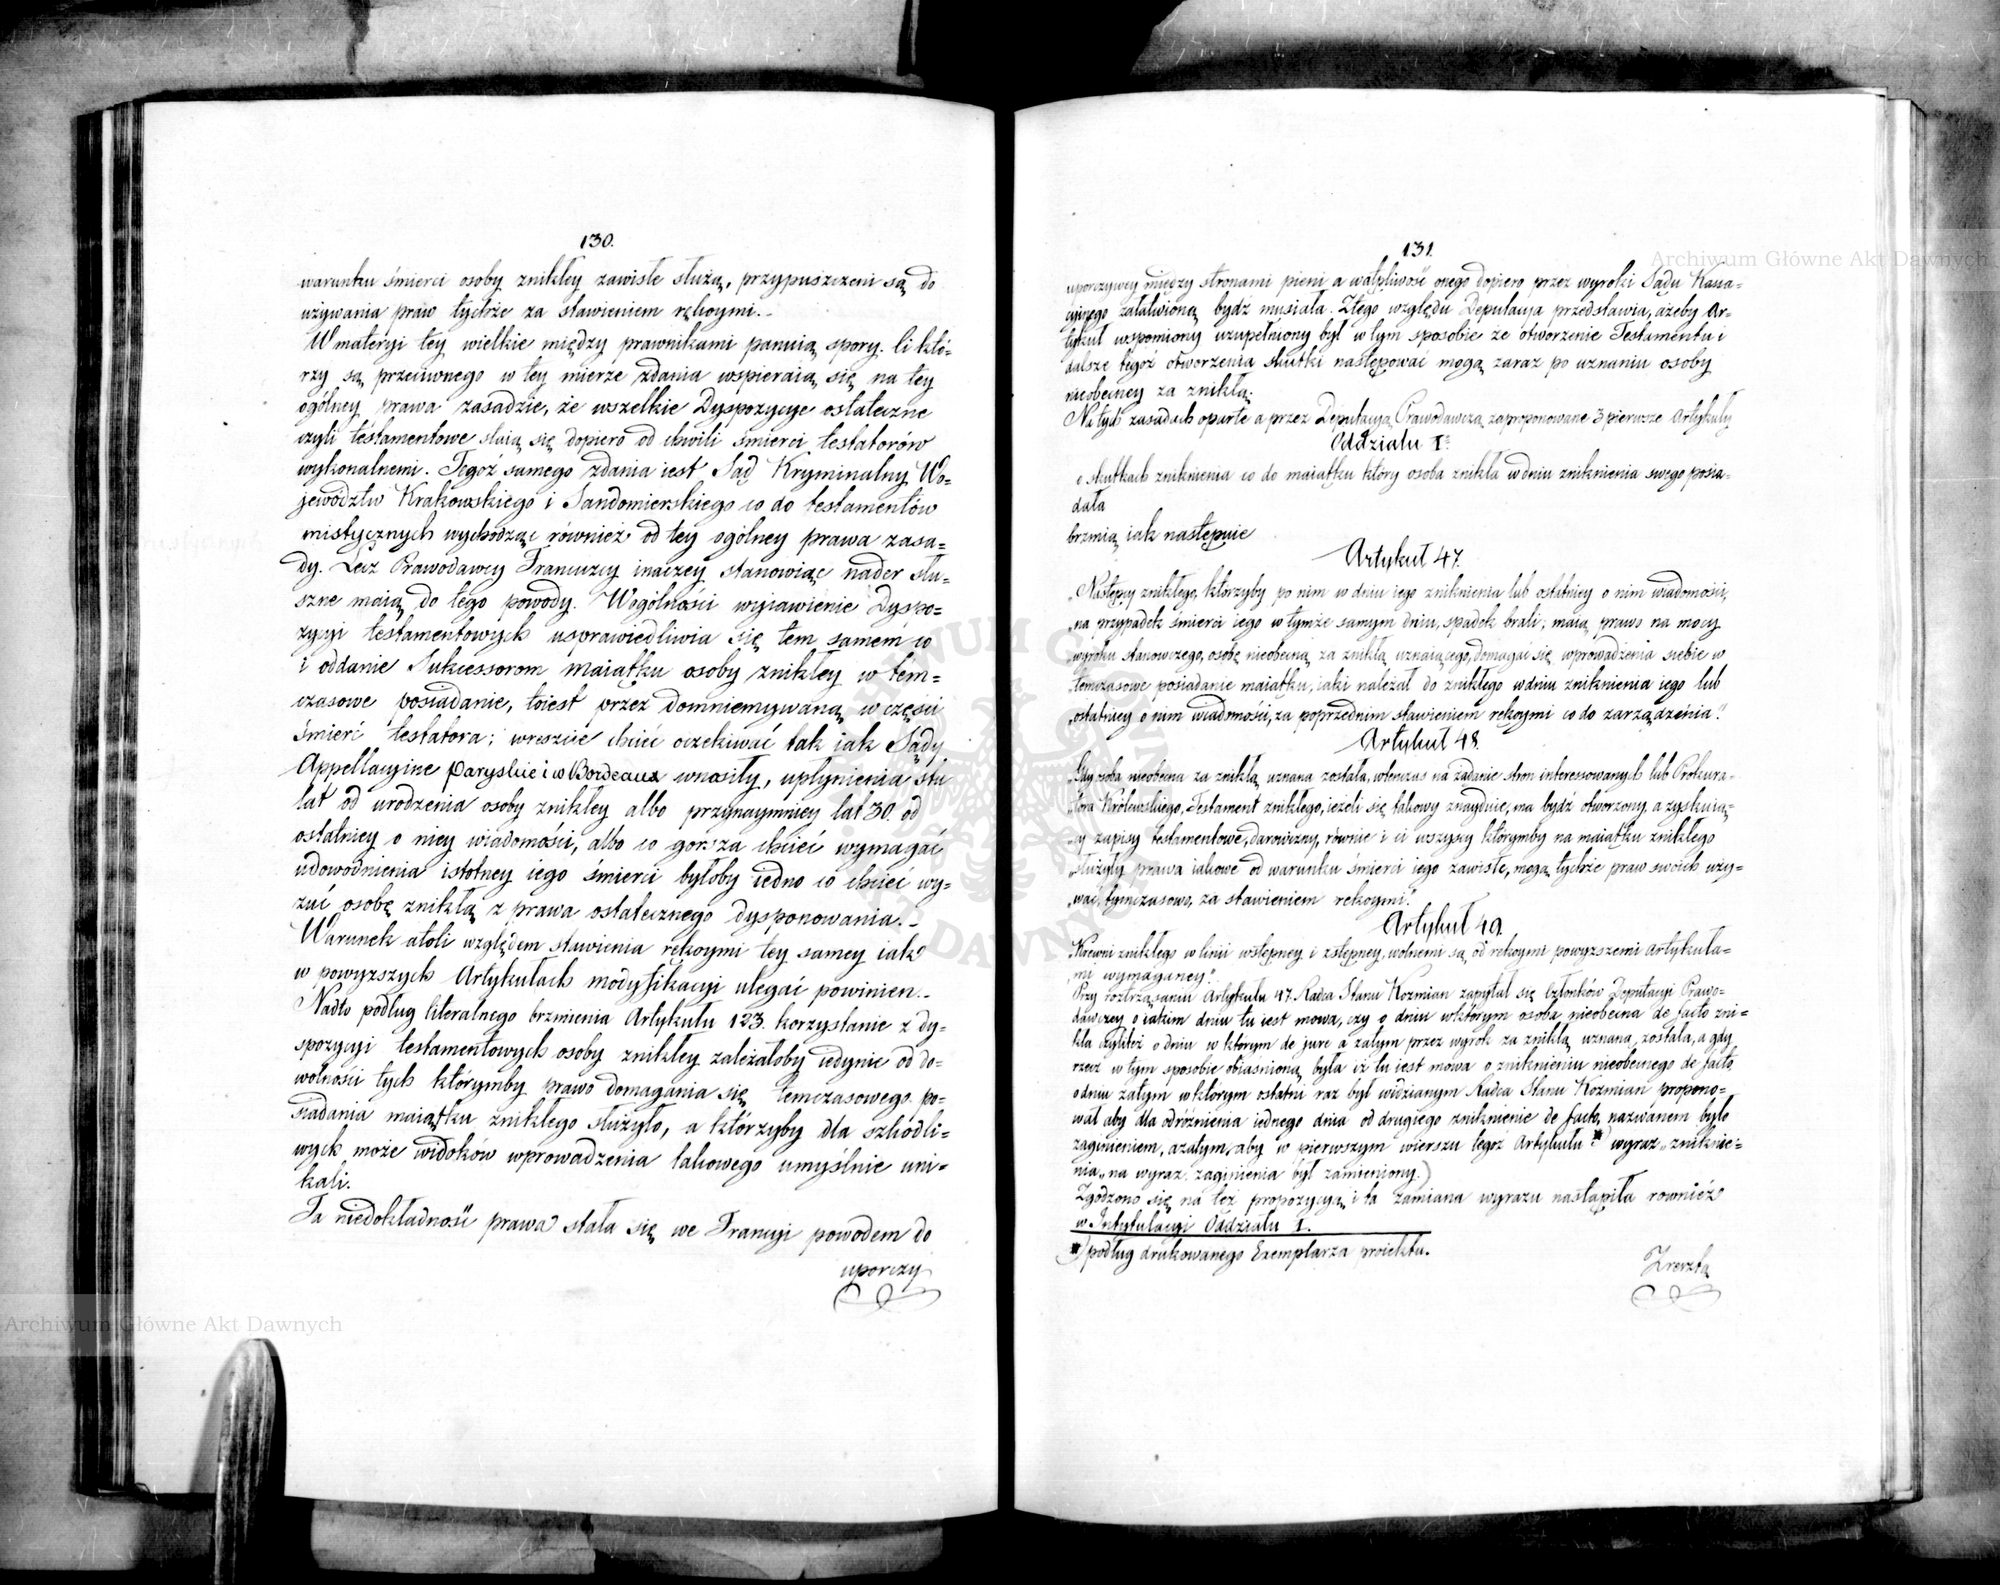 130.
warunku śmierci osoby znikłey zawisłe służą, przypuszczeni są do
używania praw tychże za stawieniem rękoymi.-
W materyi tey wielkie między prawnikami panuią spory. Ci któ=
rzy są przeciwnego w tey mierze zdania wspieraią się na tey
ogólney prawa zasadzie, że wszelkie Dyspozycye ostateczne
czyli testamentowe staią się dopiero od chwili śmierci testatorów
wykonalnemi. Tegoż samego zdania iest Sąd Kryminalny Wo=
jewództw Krakowskiego i Sandomierskiego co do testamentów
mistycznych wychodząc również od tey ogólney prawa zasa=
dy. Lecz Prawodawcy Francuzcy inaczey stanowiąc nader słu=
szne maią do tego powody. W ogólności wyiawienie Dyspo=
zycyi testamentowych usprawiedliwia się tem samem co
i oddanie Sukcessorom maiątku osoby znikłey w tém=
czasowe posiadanie, toiest przez domniemywaną w części
śmierć testatora; wreszcie chcieć oczekiwać tak iak Sądy
Appellacyine Paryskie i w Bordeaux wnosiły, upłynienia stu
lat od urodzenia osoby znikłey albo przynaymniey lat 30. od
ostatniey o niey wiadomości, albo co gorsza chcieć wymagać
udowodnienia istotney iego śmierci byłoby iedno co chcieć wy=
zuć osobę znikłą z prawa ostatecznego dysponowania.-
Warunek atoli względem stawienia rękoymi tey samey iak
w powyższych Artykułach modyfikacyi ulegać powinien.-
Nadto podług literalnego brzmienia Artykułu 123. korzystanie z dy=
spozycyi testamentowych osoby znikłey zależałoby iedynie od do=
wolności tych którymby prawo domagania się temczasowego po=
siadania maiątku znikłego służyło, a którzyby dla szkodli=
wych może widoków wprowadzenia takowego umyślnie uni=
kali.
Ta niedokładność prawa stała się we Francyi powodem do
uporczy
131.
uporczywey między stronami pieni a wątpliwość onego dopiero przez wyroki Sądu Kassa=
cyinego załatwioną bydź musiała. Z tego względu Deputacya przedstawia, ażeby Ar=
tykuł wspomiony uzupełniony był w tym sposobie że otworzenie Testamentu i
dalsze tegoż otworzenia skutki następować mogą zaraz po uznaniu osoby
nieobecney za znikłą.
Na tych zasadach oparte a przez Deputacyą Prawodawczą zaproponowane 3 pierwsze Artykuły
Oddziału I.
o skutkach zniknienia co do maiątku który osoba znikła w dniu zniknienia swego posia=
dała
brzmią iak następuie
Artykuł 47.
„Następcy znikłego, którzyby po nim w dniu iego zniknienia lub ostatniey o nim wiadomości,
„na przypadek śmierci iego w tymże samym dniu, spadek brali; maią prawo na mocy
„wyroku stanowczego, osobę nieobecną za znikłą uznaiącego, domagać się wprowadzenia siebie w
„temczasowe posiadanie maiątku, iaki należał do znikłego w dniu zniknienia iego lub
„ostatniey o nim wiadomości, za poprzednim stawieniem rękoymi co do zarządzenia."
Artykuł 48.
„Gdy osoba nieobecna za znikłą uznana została, wtenczas na żądanie stron interessowanych lub Prokura=
„tora Królewskiego, Testament znikłego, ieżeli się takowy znayduie, ma bydź otworzony, a zyskuią=
„cy zapisy testamentowe, darowizny, równie i ci wszyscy którymby na maiątku znikłego
„służyły prawa iakowe od warunku śmierci iego zawisłe, mogą tychże praw swoich uży=
„wać tymczasowo, za stawieniem rękoymi."
Artykuł 49.
„Krewni znikłego w linii wstępney i zstępney, wolnemi są od rękoymi powyższemi Artykuła=
„mi wymaganey".
Przy roztrząsaniu Artykułu 47. Radca Stanu Kozmian zapytał się Członków Deputacyi Prawo=
dawczey o iakim dniu tu iest mowa, czy o dniu w którym osoba nieobecna de facto zni=
kła czyliteż o dniu w którym de jure a zatym przez wyrok za znikłą uznana została, a gdy
rzecz w tym sposobie obiaśnioną była iż tu iest mowa o zniknieniu nieobecnego de facto,
o dniu zatym w którym ostatni raz był widzianym Radca Stanu Kozmian propono=
wał aby dla odróżnienia iednego dnia od drugiego zniknienie de facto, nazwanem było
zaginieniem, a zatym, aby w pierwszym wierszu tegoż Artykułu * wyraz „zniknie=
nia„ na wyraz zaginienia był zamieniony.)
Zgodzono się na też propozycyą i ta zamiana wyrazu nastąpiła również
w Intytulacyi Oddziału I.
*) podług drukowanego Exemplarza proiektu.
Zreszta